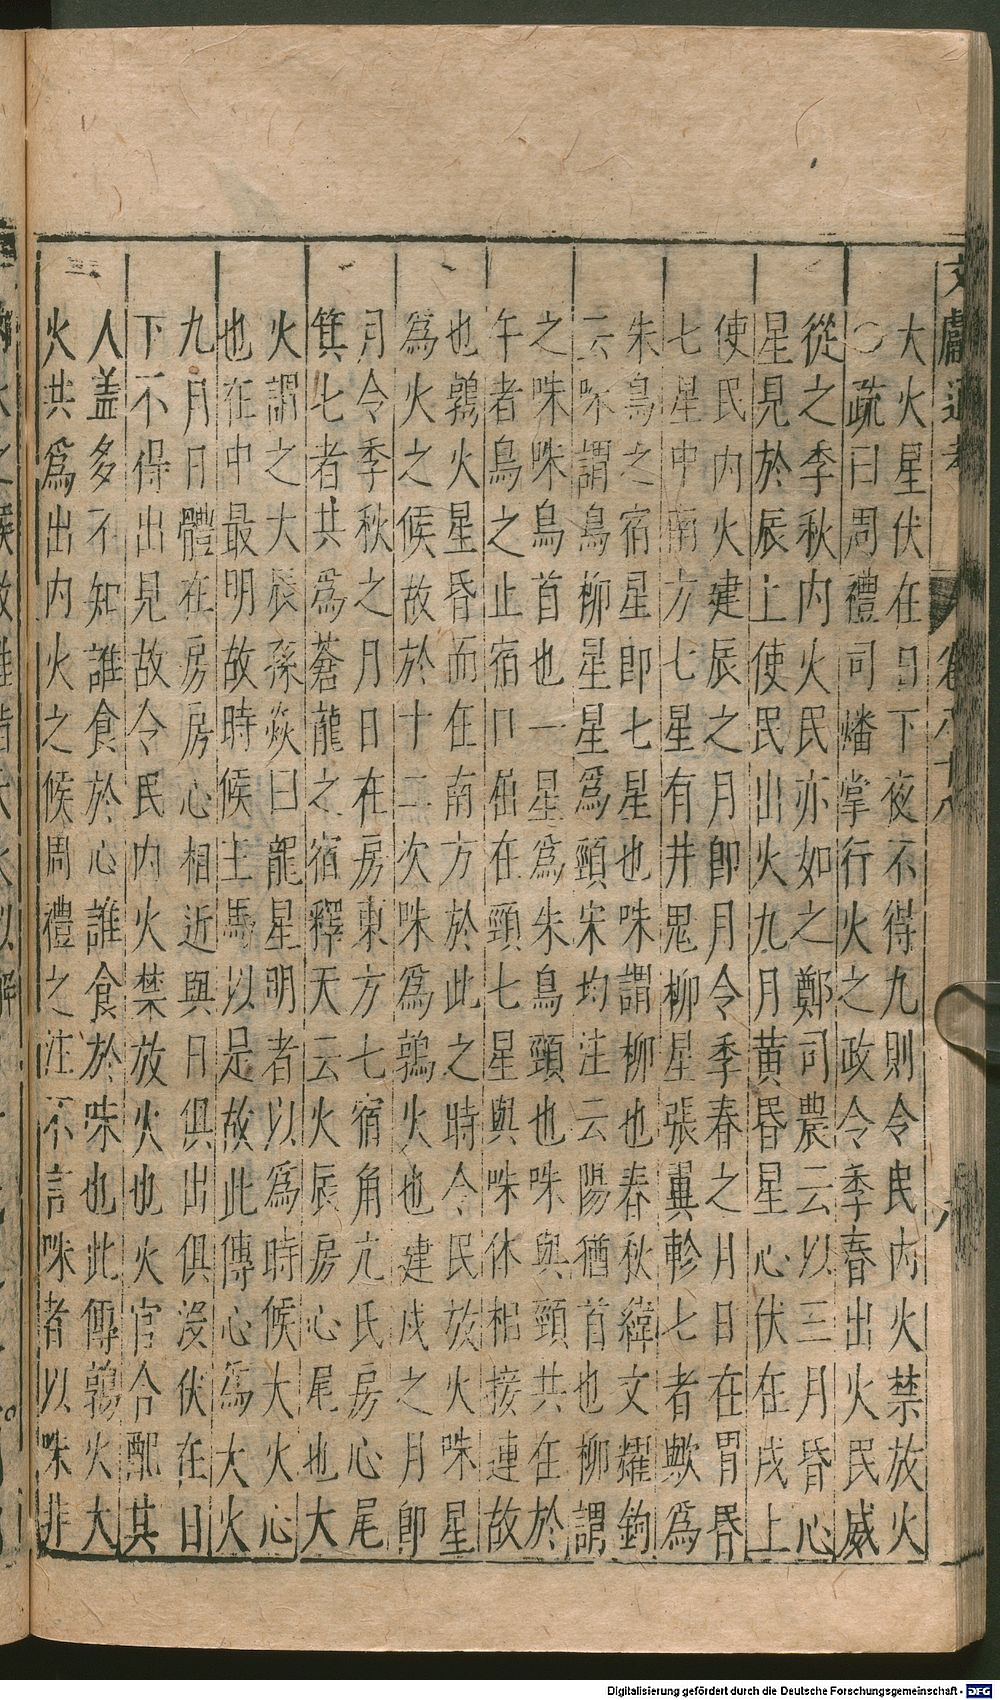 文獻通考
卷八十八
八
大火星伏在日下夜不得九則令民内火禁放火
〇疏曰周禮司燔掌行火之政令季春出火民威
從之季秋内火民亦如之鄭司農云以三月昏心
星見於辰上使民出火九月黄昏星心伏在戌上
使民内火建辰之月即月令季春之月日在胃昏
七星中南方七星有井鬼柳星張翼軫七者歟爲
朱鳥之宿星即七星也咮謂柳也春秋緯文耀鉤
云咮謂鳥柳星星爲頸宋均注云陽猶首也柳謂
之咮咮鳥首也一星爲朱鳥頸也咮與頸共在於
午者鳥之止宿口屈在頸七星與咮体相接連故
也鶉火星昏而在南方於此之時令民放火咮星
爲火之候故於十二次咮爲鶉火也建戌之月即
月令季秋之月日在房東方七宿角亢氐房心尾
箕七者共爲蒼龍之宿釋天云火辰房心尾也大
火謂之大辰孫炎曰龍星明者以爲時候大火心
也在中最明故時候主焉以是故此傳心爲大火
九月日體在房房心相近與日俱出俱没伏在日
下不得出見故令民内火禁放火也火官合配其
人盖多不知誰食於心誰食於咮也此傳鶉火大
火共爲出内火之候周禮之注不言咮者以咮非
Digitalisierung gefördert durch die Deutsche Forschungsgemeinschaft - DFG